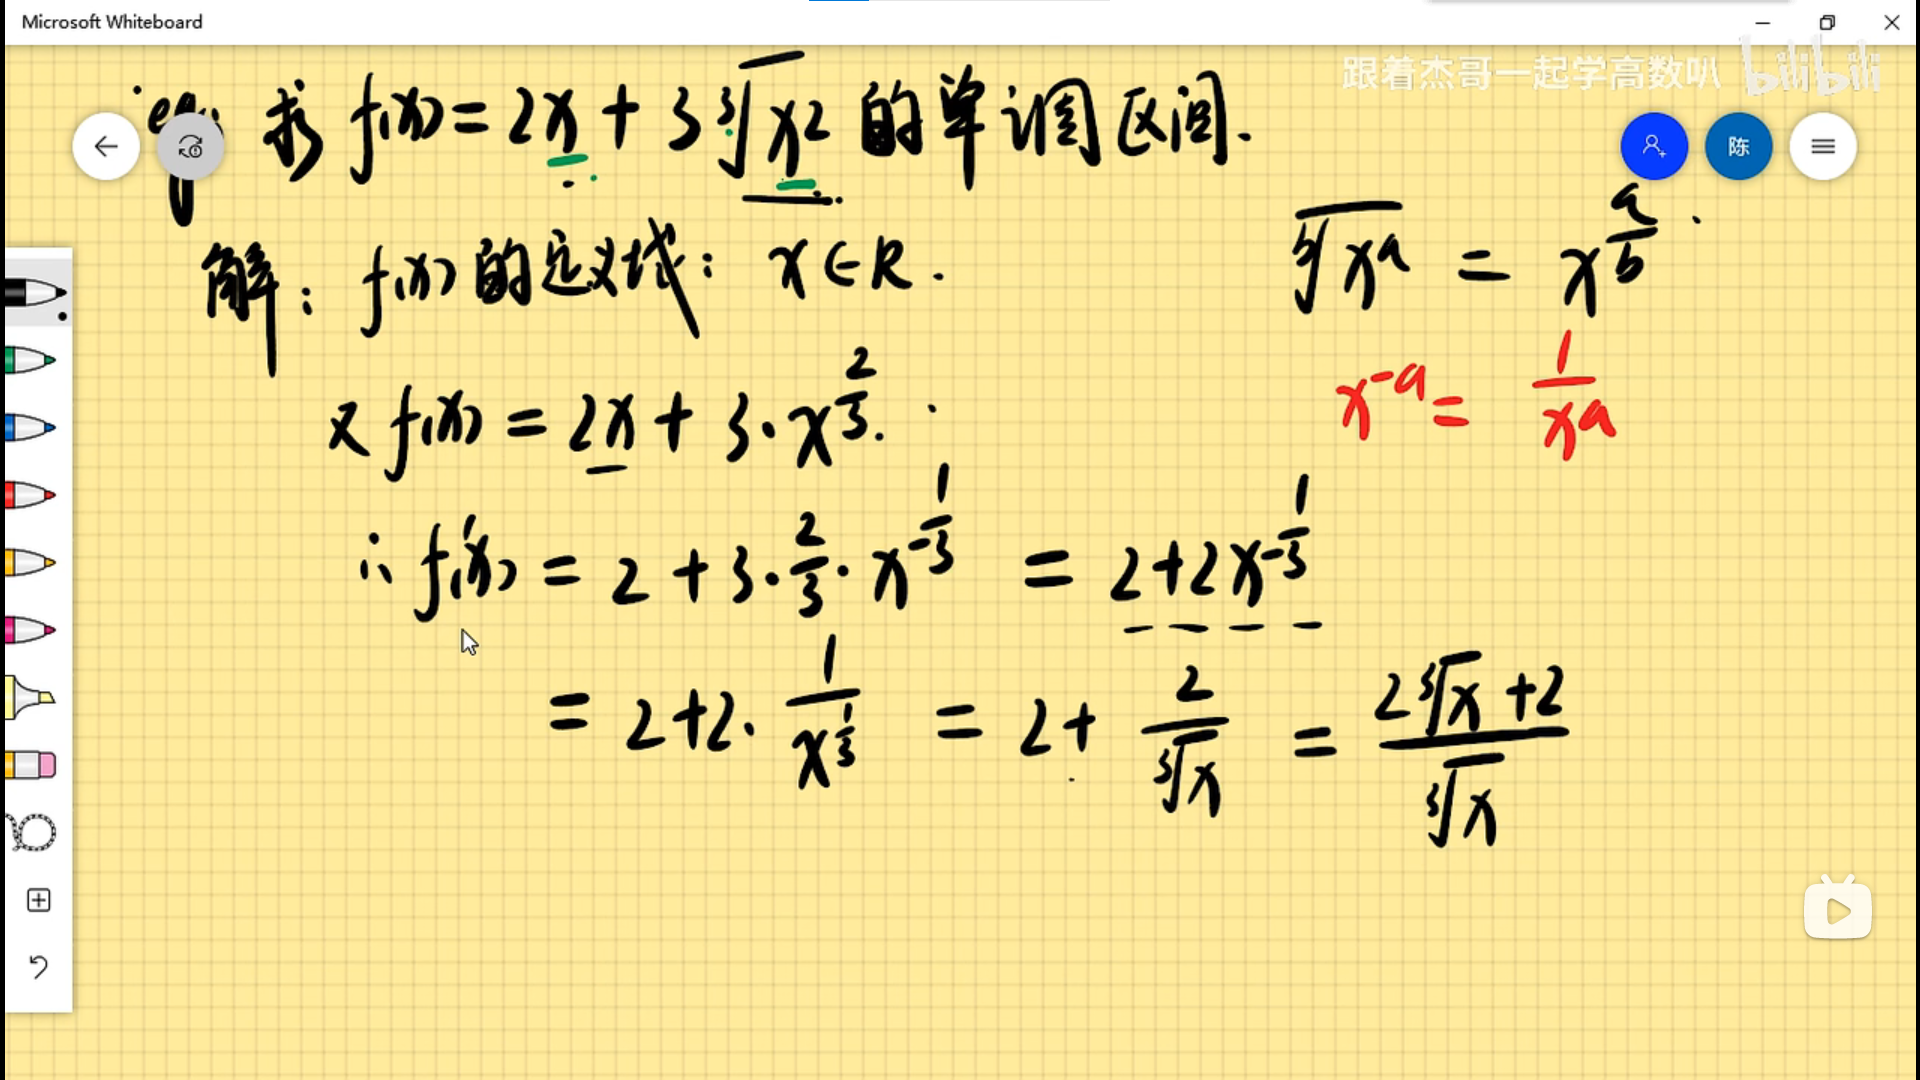 Microsoft Whiteboard
跟着杰哥一起学高数叭 bilibili
eg: 求 f(x) = 2x + 3∛x² 的单调区间.
陈
解: f(x) 的定义域: x∈R.
ᵇ√xᵃ = x^(a/b)
x^(-a) = 1/xᵃ
又 f(x) = 2x + 3·x^(2/3).
∴ f'(x) = 2 + 3·2/3·x^(-1/3) = 2+2x^(-1/3)
= 2+2·1/x^(1/3) = 2+ 2/∛x = (2∛x+2)/∛x